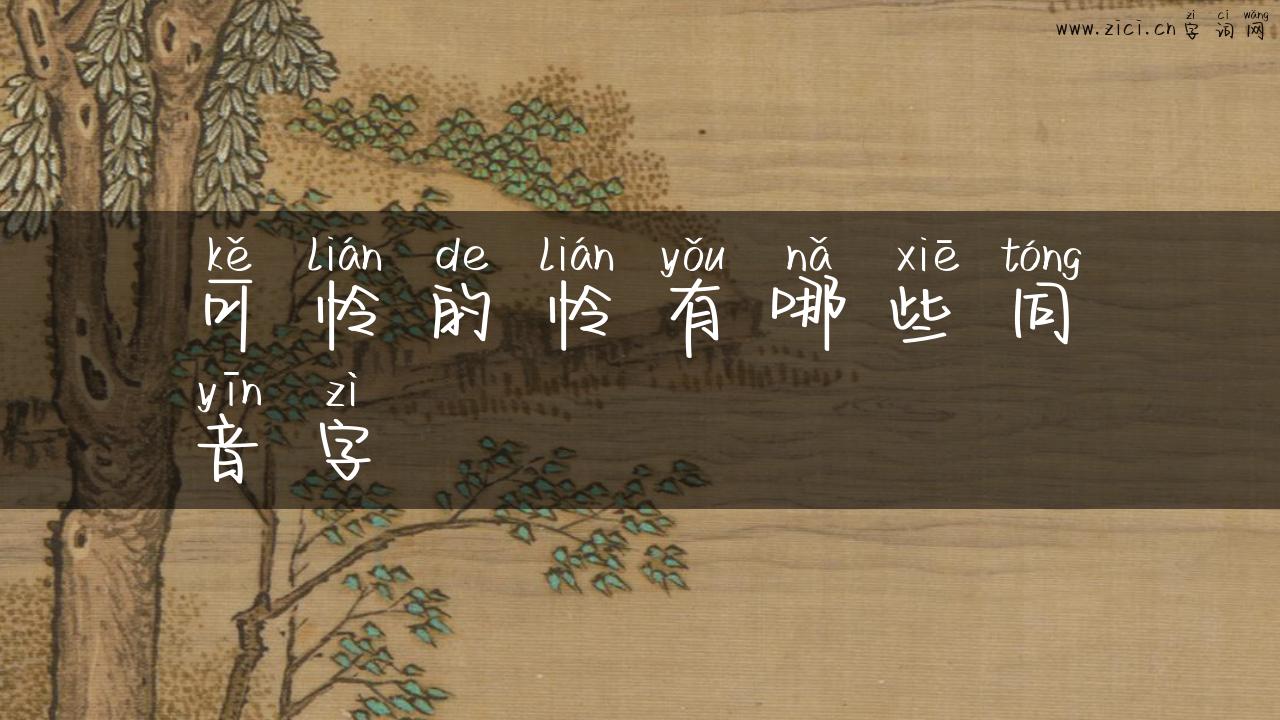 zì cí wǎng
www.zici.cn 字词网
kě lián de lián yǒu nǎ xiē tóng
可怜的怜有哪些同
yīn zì
音字